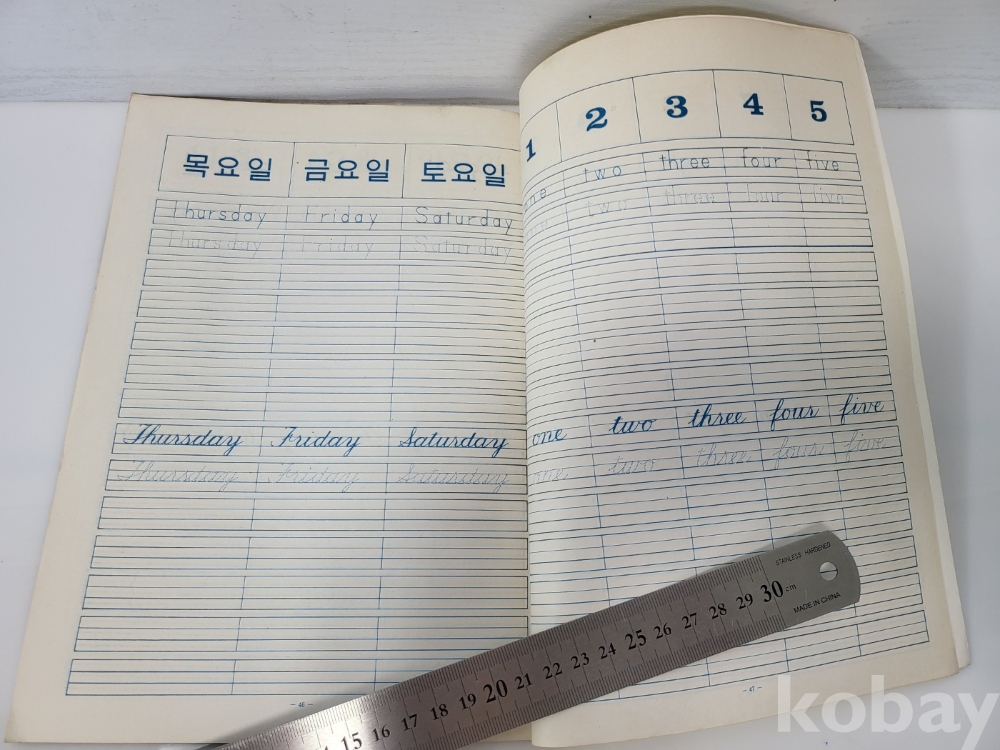 목요일 금요일 토요일
Thursday Friday Saturday
Thursday Friday Saturday
Thursday Friday Saturday
Thursday Friday Saturday
- 46 -
1 2 3 4 5
one two three four five
one two three four five
one two three four five
one two three four five
- 47 -
STAINLESS HARDENED
15 16 17 18 19 20 21 22 23 24 25 26 27 28 29 30 cm
MADE IN CHINA
kobay